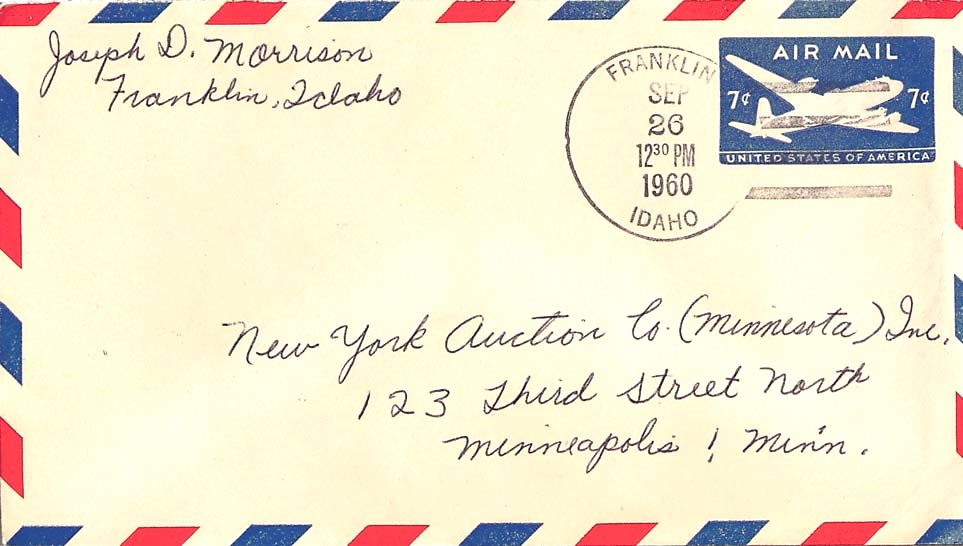 Joseph D. Morrison
Franklin, Idaho
FRANKLIN
SEP
26
12³⁰ PM
1960
IDAHO
AIR MAIL
7¢ 7¢
UNITED STATES OF AMERICA
New York Auction Co. (Minnesota) Inc.
123 Third Street North
Minneapolis 1, Minn.